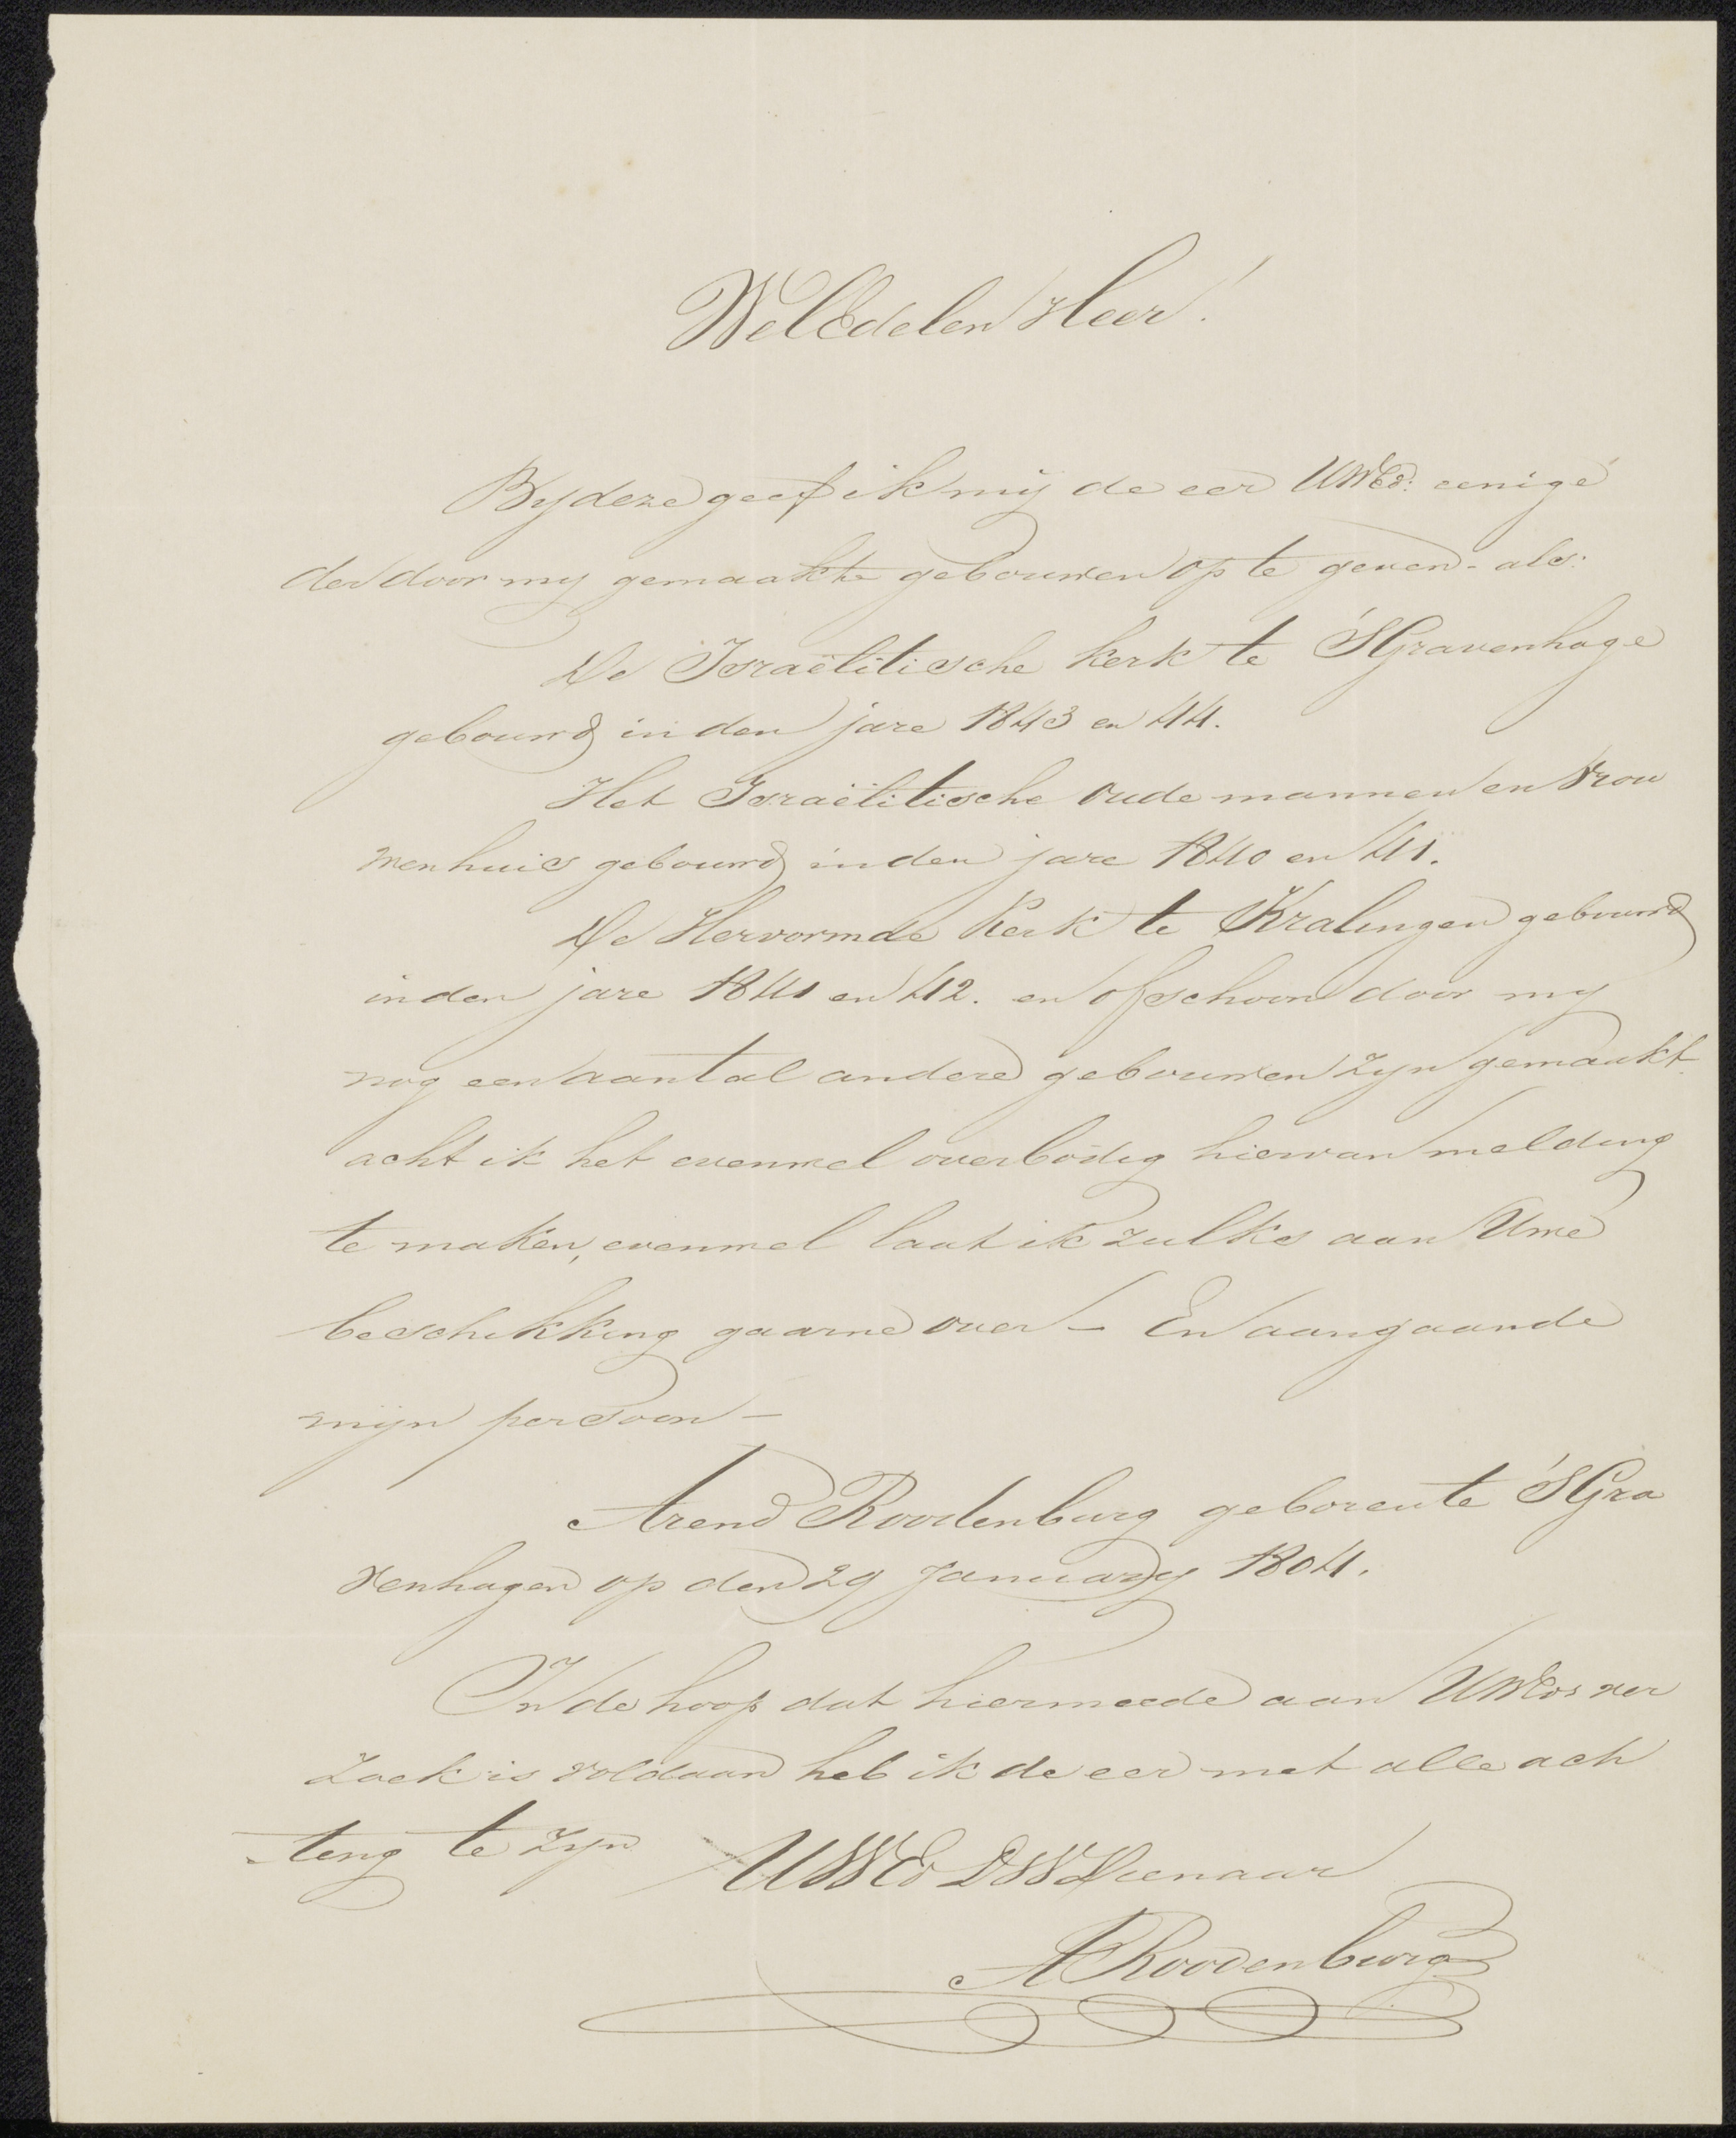 WelEdelen Heer!
By deze geef ik mij de eer UWEd: eenige
der door my gemaakte gebouwen op te geven - als:
De Israëlitische kerk te 'SGravenhage
gebouwd in den jare 1843 en 44.
Het Israëlitische oude mannen en Vrou
wenhuis gebouwd in den jare 1840 en 41.
De Hervormde Kerk te Kralingen gebouwd
in den jare 1841 en 42. en ofschoon door my
nog een aantal andere gebouwen zyn gemaakt
acht ik het evenwel overbodig hiervan melding
te maken, evenwel laat ik zulks aan Uwe
beschikking gaarne over - En aangaande
mijn persoon -
Arend Roodenburg geboren te 'SGra
venhagen op den 29 January 1804.
In de hoop dat hiermeede aan UWEds ver
zoek is voldaan heb ik de eer met alle ach
ting te zyn
UWEd DWDienaar
A Roodenburg